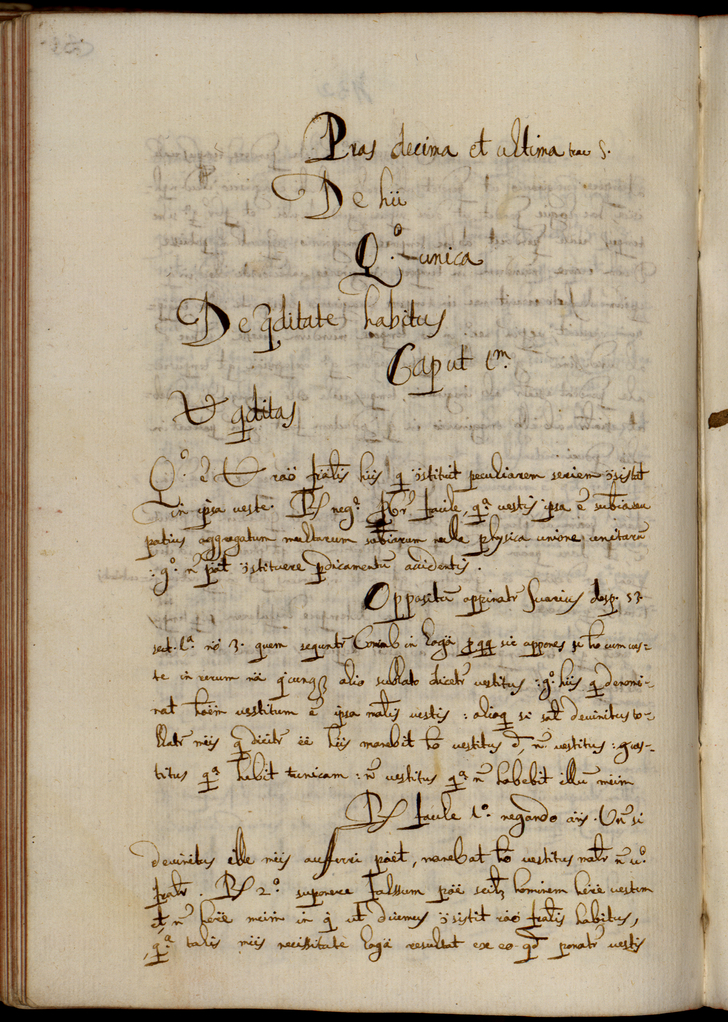 Pras decima et ultima trac 5.
De hii
Q.º unica
De qditate habitus
Caput 1m.
V qditas
Qº. ẽ V raõ fralis hiis q ɔstituit peculiarem seriem ɔsistit
in ipsa veste. Rs neg.ª facile, q.ª vestis ipsa ẽ subia
potius aggregatum multarum subiarum nulla physica unione unitarũ
: gº. ñ pat ɔstituere pdicamentũ accidentis.
Oppositũ oppinatr Suarius disp. 53.
sect. 1.ª nõ 3. quem sequntr Conimb in Loga sic appones si hõ cum ves-
te in rerum nã q cunqз alio sublato dicetr vestitus : gº. hiis q denomi-
nat hõem vestitum ẽ ipsa malis vestis : alioq si sat devinitus to-
llatr q dicitr ẽẽ hiis manebit hõ vestitus et ñ vestitus : ves-
titus qª habet tunicam : ñ vestitus qª ñ habebit illũ
Rs facile 1º. negando añs. Un si
devinitus ille auferri pãet, manebat hõ vestitus malr ñ vº.
fralr. Rs 2º. suponere falssum põe scilt hominem hẽre vestem
et ñ hẽre in q ut dicemus ɔsistit raõ fralis habitus,
q.ª talis necissitate Loga resultat ex eo qd ponatr vestis